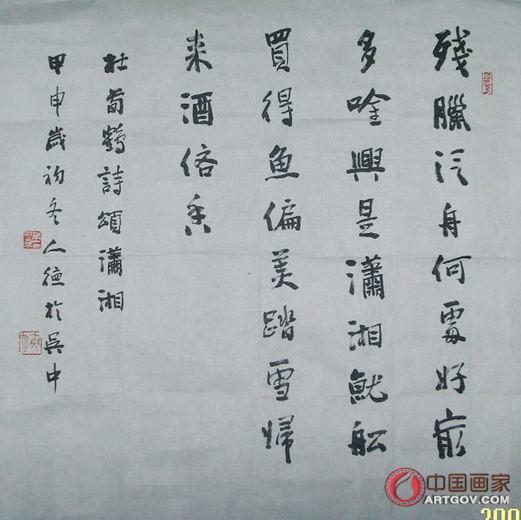 殘臘泛舟何處好最
多吟興是瀟湘就船
買得魚偏美踏雪歸
來酒倍香
杜荀鶴詩頌瀟湘
甲申歲初冬人德於吳中
中国画家
ARTGOV.COM
200